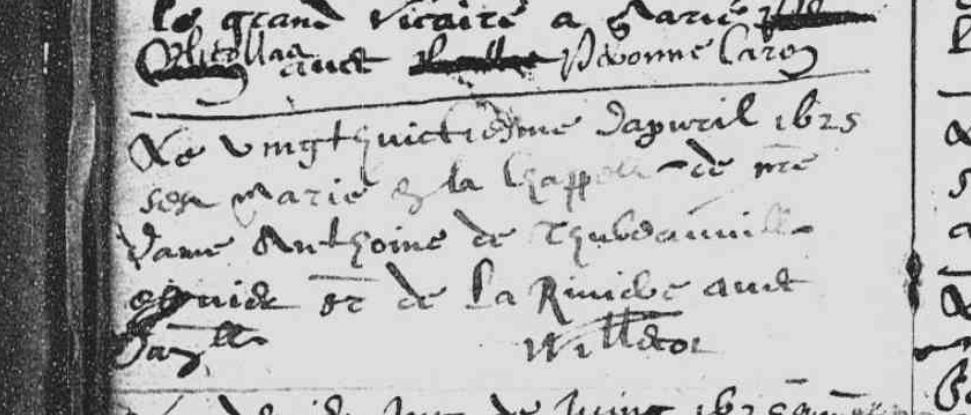 le grand Vicaire a Marie
Nicollas avec Yvonne Caron
Le vingthuictiesme dapvril 1625
sest Marie en la Chappelle de nre
dame Anthoine de Thubeauville
escuier sr de La Riviere avec
Willecot
de Juing 1625